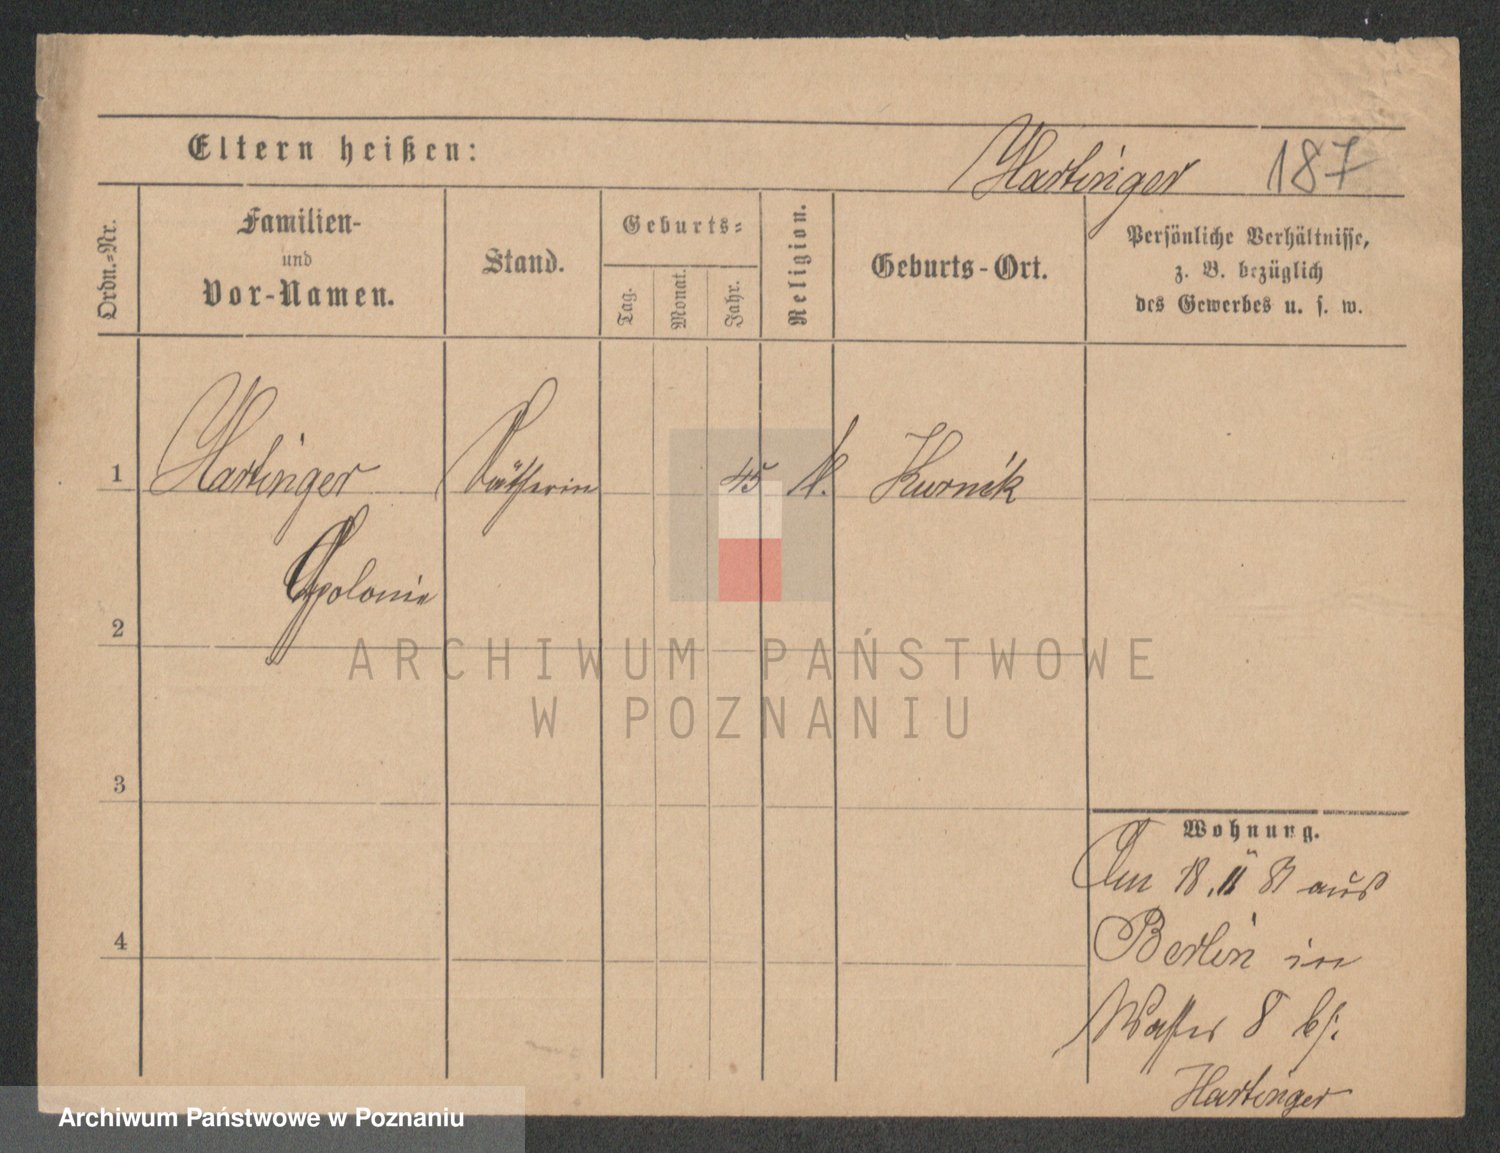 Eltern heißen:
Hartinger 187
Ordn.-Nr.
Familien-
und
Vor-Namen.
Stand.
Geburts-
Tag.
Monat.
Jahr.
Religion.
Geburts-Ort.
Persönliche Verhältnisse,
z. B. bezüglich
des Gewerbes u. s. w.
1 Hartinger 45 Kurnik
Apolonie
2
ARCHIWUM PAŃSTWOWE
W POZNANIU
3
Wohnung.
Am 18. 11 81 aus
4
Berlin in
Wasser 8 bs.
Hartinger
Archiwum Państwowe w Poznaniu